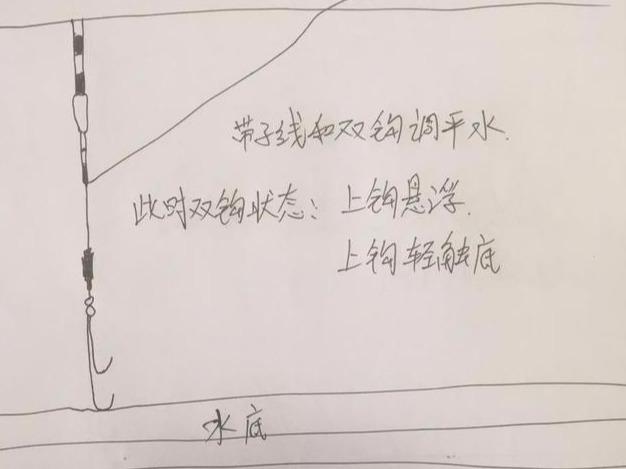 带子线和双钩调平水.
此时双钩状态: 上钩悬浮.
上钩轻触底
水底